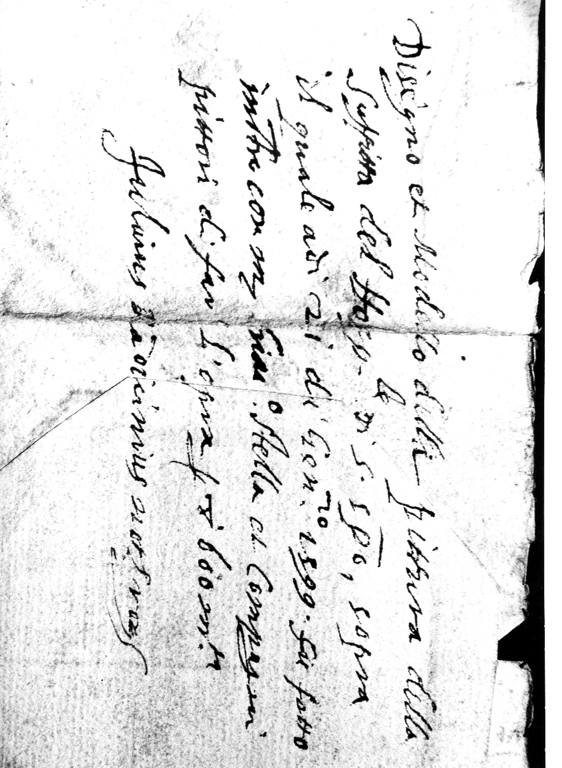 Disegno et Modello della pittura della
Suffitta del Hosp.le di S. Spo, sopra
il quale adi 21 di Genro 1599. fu fatto
instro con m Giac.o Stella et Compagni
pittori di far l'opra p 600 m.ta
Fulvius not.s